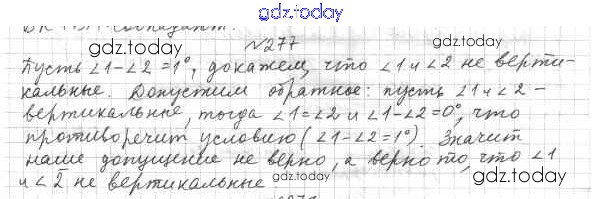 gdz.today
№277
gdz.today gdz.today
Пусть ∠1-∠2=1°, докажем, что ∠1 и ∠2 не верти-
кальные. Допустим обратное: пусть ∠1 и ∠2 -
вертикальные, тогда ∠1=∠2 и ∠1-∠2=0°, что
противоречит условию (∠1-∠2=1°). Значит
наше допущение не верно, а верно то, что ∠1
и ∠2 не вертикальные.
gdz.today gdz.today